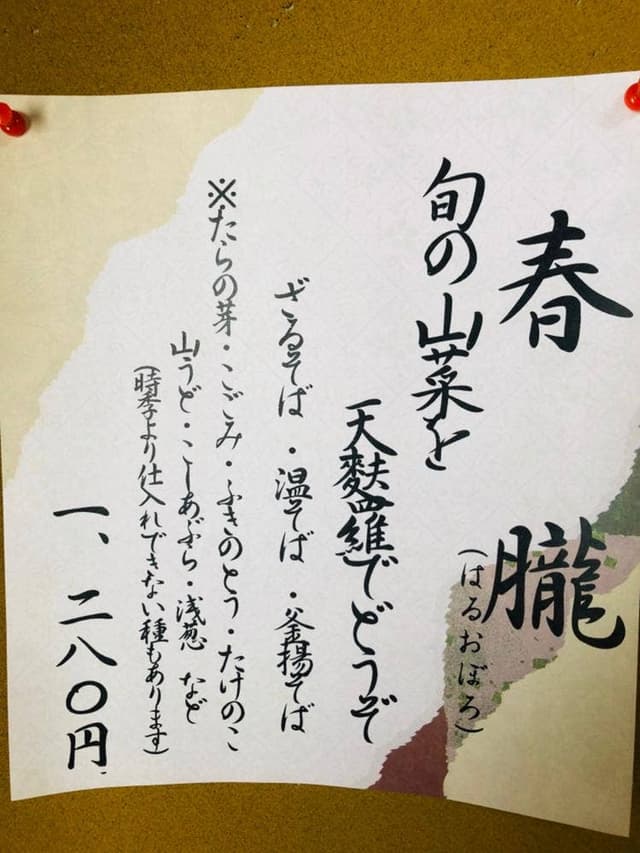 春朧
(はるおぼろ)
旬の山菜を
天麩羅でどうぞ
ざるそば・温そば・釜揚そば
※たらの芽・こごみ・ふきのとう・たけのこ
山うど・こしあぶら・浅葱 など
(時季より仕入れできない種もあります)
一、二八〇円